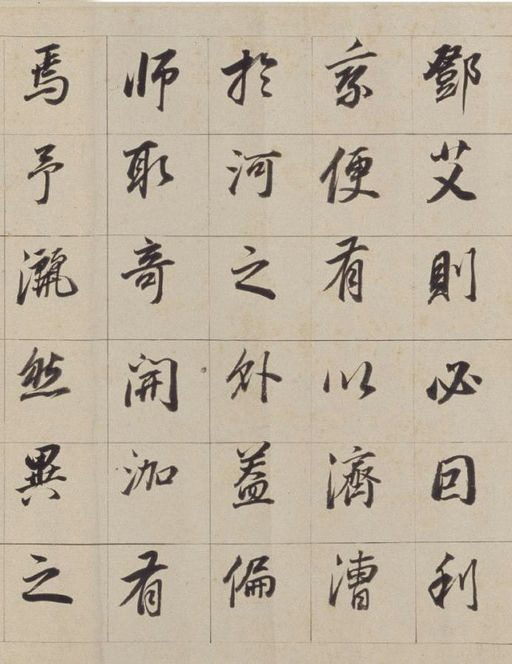 鄧艾則必回利
亰便有以濟漕
於河之外蓋偏
师取奇開泇有
焉予灑然異之